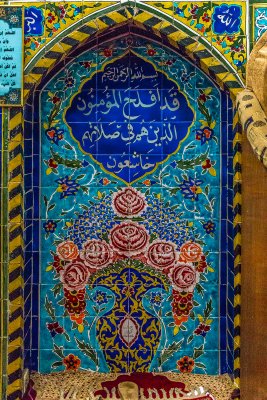 الله
بسم الله الرحمن الرحيم
قد افلح المؤمنون
الذين هم في صلاتهم
خاشعون